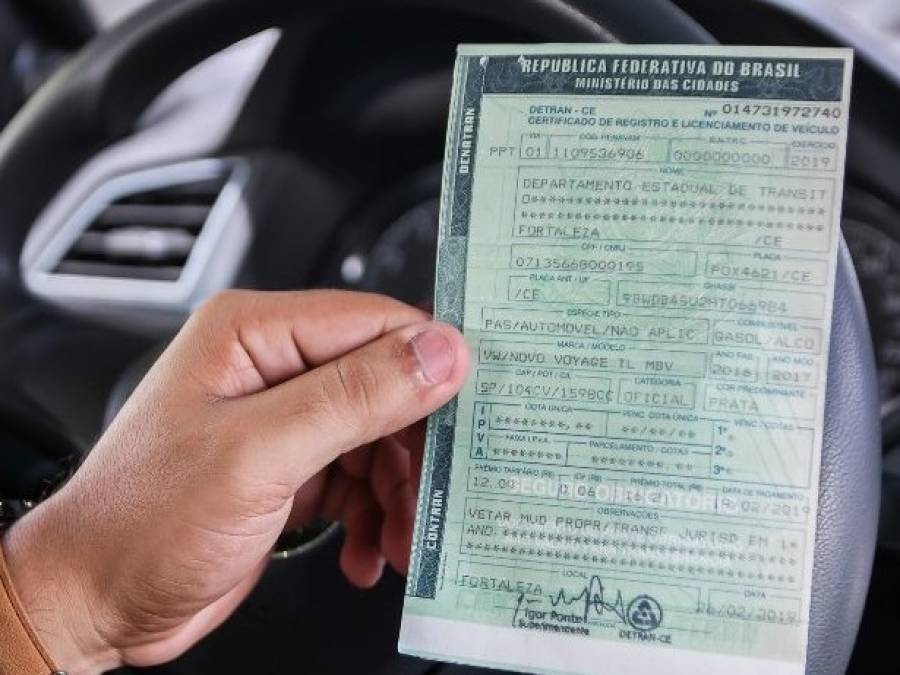 REPUBLICA FEDERATIVA DO BRASIL
MINISTÉRIO DAS CIDADES
DENATRAN
DETRAN - CE Nº 014731972740
CERTIFICADO DE REGISTRO E LICENCIAMENTO DE VEÍCULO
VIA CÓD. RENAVAM R.N.T.R.C. EXERCÍCIO
PPT 01 1109536906 0000000000 2019
NOME
DEPARTAMENTO ESTADUAL DE TRANSIT
O*******************************
********************************
FORTALEZA /CE
CPF / CNPJ PLACA
07135668000195 POX4621/CE
PLACA ANT / UF CHASSI
/CE
ESPÉCIE TIPO COMBUSTÍVEL
PAS/AUTOMOVEL/NAO APLIC GASOL/ALCO
MARCA / MODELO ANO FAB. ANO MOD
VW/NOVO VOYAGE TL MBV 2016 2017
CAP / POT / CIL CATEGORIA COR PREDOMINANTE
5P/104CV/1598CC OFICIAL PRATA
IPVA
COTA ÚNICA VENC. COTA ÚNICA VENC. / COTAS
********,** **/**/** 1ª
FAIXA I.P.V.A. PARCELAMENTO / COTAS 2ª
3ª
PRÊMIO TARIFÁRIO (R$) IOF (R$) PRÊMIO TOTAL (R$) DATA DE PAGAMENTO
SEGURO OBRIGATÓRIO
OBSERVAÇÕES
VETAR MUD PROPR/TRANSF JURISD EM 1*
ANO.
CONTRAN
LOCAL DATA
FORTALEZA 26/02/2019
Igor Ponte
Superintendente
DETRAN-CE